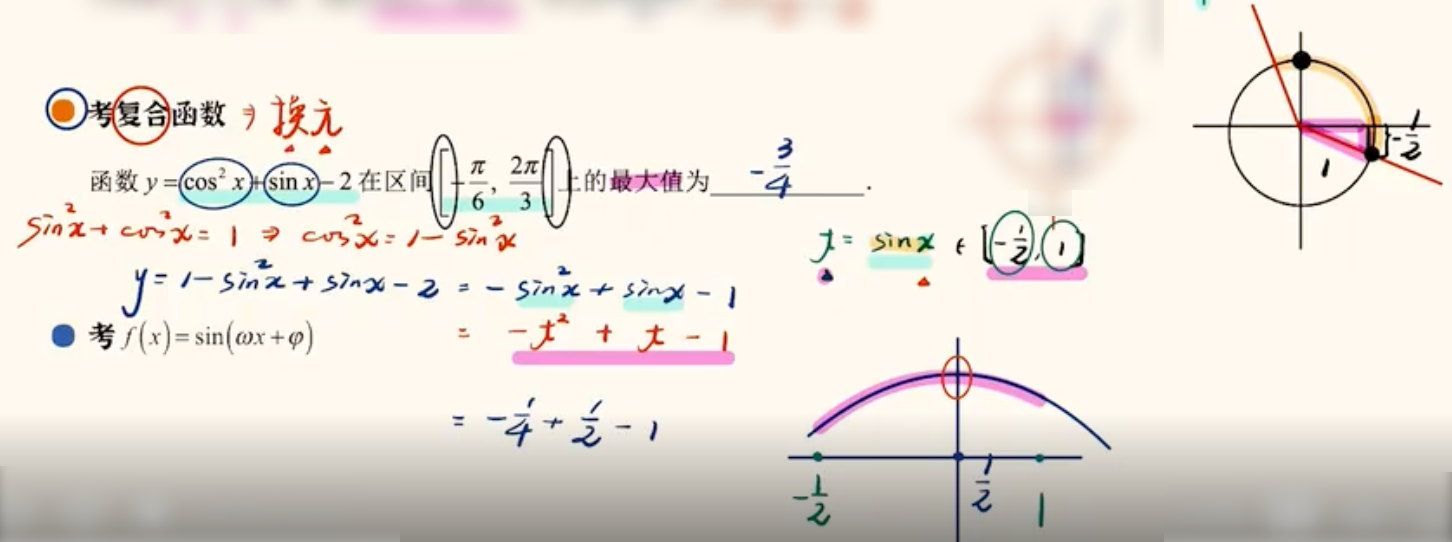 考复合函数 ⇒ 换元
函数 y = cos² x + sin x − 2 在区间 [−π/6, 2π/3] 上的最大值为 −3/4 .
sin²x + cos²x = 1 ⇒ cos²x = 1 − sin²x
t = sinx ∈ [−1/2, 1]
y = 1 − sin²x + sinx − 2 = − sin²x + sinx − 1
考 f(x) = sin(ωx + φ)
= −t² + t − 1
= −1/4 + 1/2 − 1
−1/2
1/2
1
1
−1/2